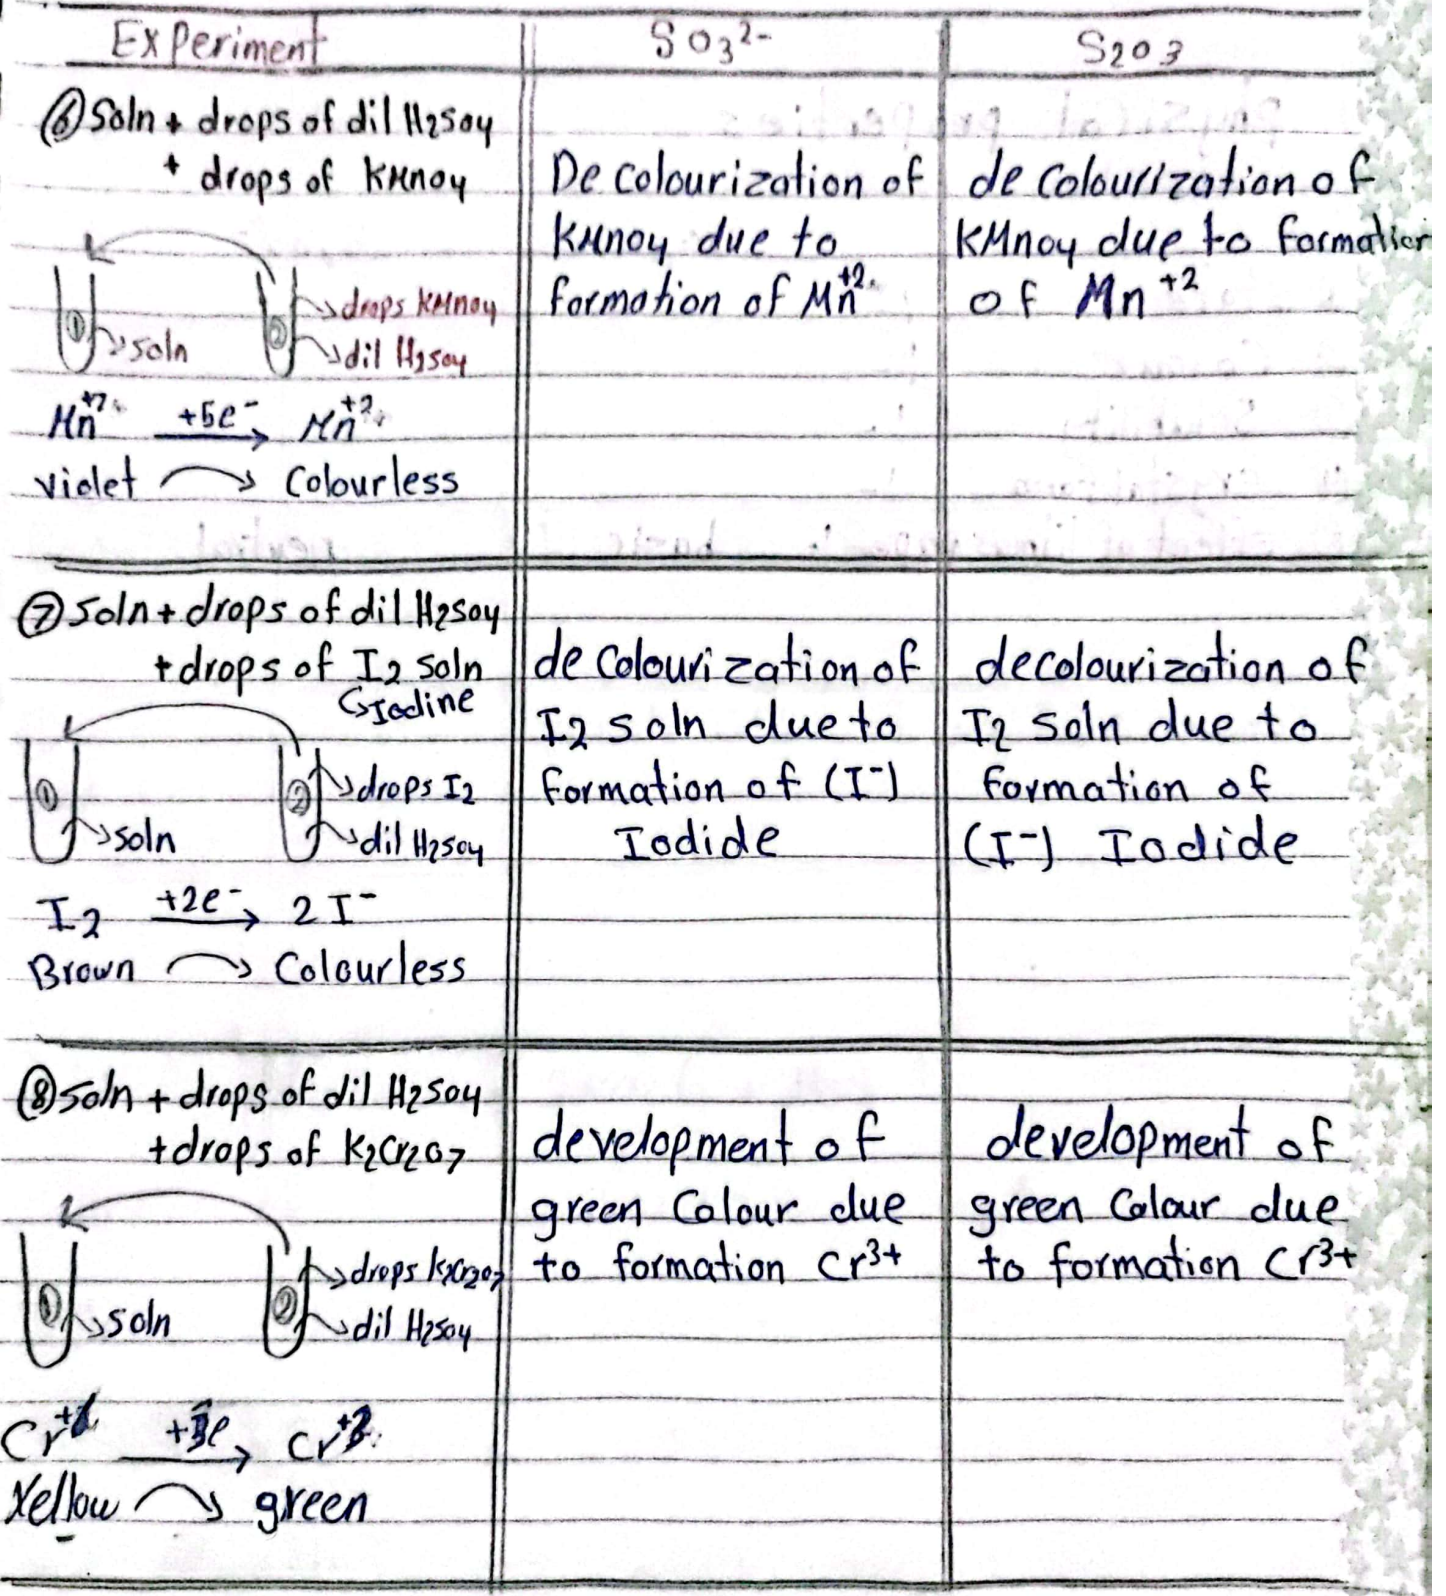 Experiment
SO3 2-
S2O3
⑥ Soln + drops of dil H2SO4
+ drops of KMnO4
drops KMnO4
soln
dil H2SO4
①
②
Mn+7 +5e- Mn+2
violet Colourless
De colourization of
KMnO4 due to
formation of Mn+2
de colourization of
KMnO4 due to formation
of Mn+2
⑦ soln + drops of dil H2SO4
+ drops of I2 soln
Iodine
①
②
drops I2
soln
dil H2SO4
I2 +2e- 2I-
Brown Colourless
de colourization of
I2 soln due to
formation of (I-)
Iodide
decolourization of
I2 soln due to
formation of
(I-) Iodide
⑧ soln + drops of dil H2SO4
+ drops of K2Cr2O7
①
②
drops K2Cr2O7
soln
dil H2SO4
Cr+6 +3e Cr+3
Yellow green
development of
green Colour due
to formation Cr3+
development of
green Colour due
to formation Cr3+